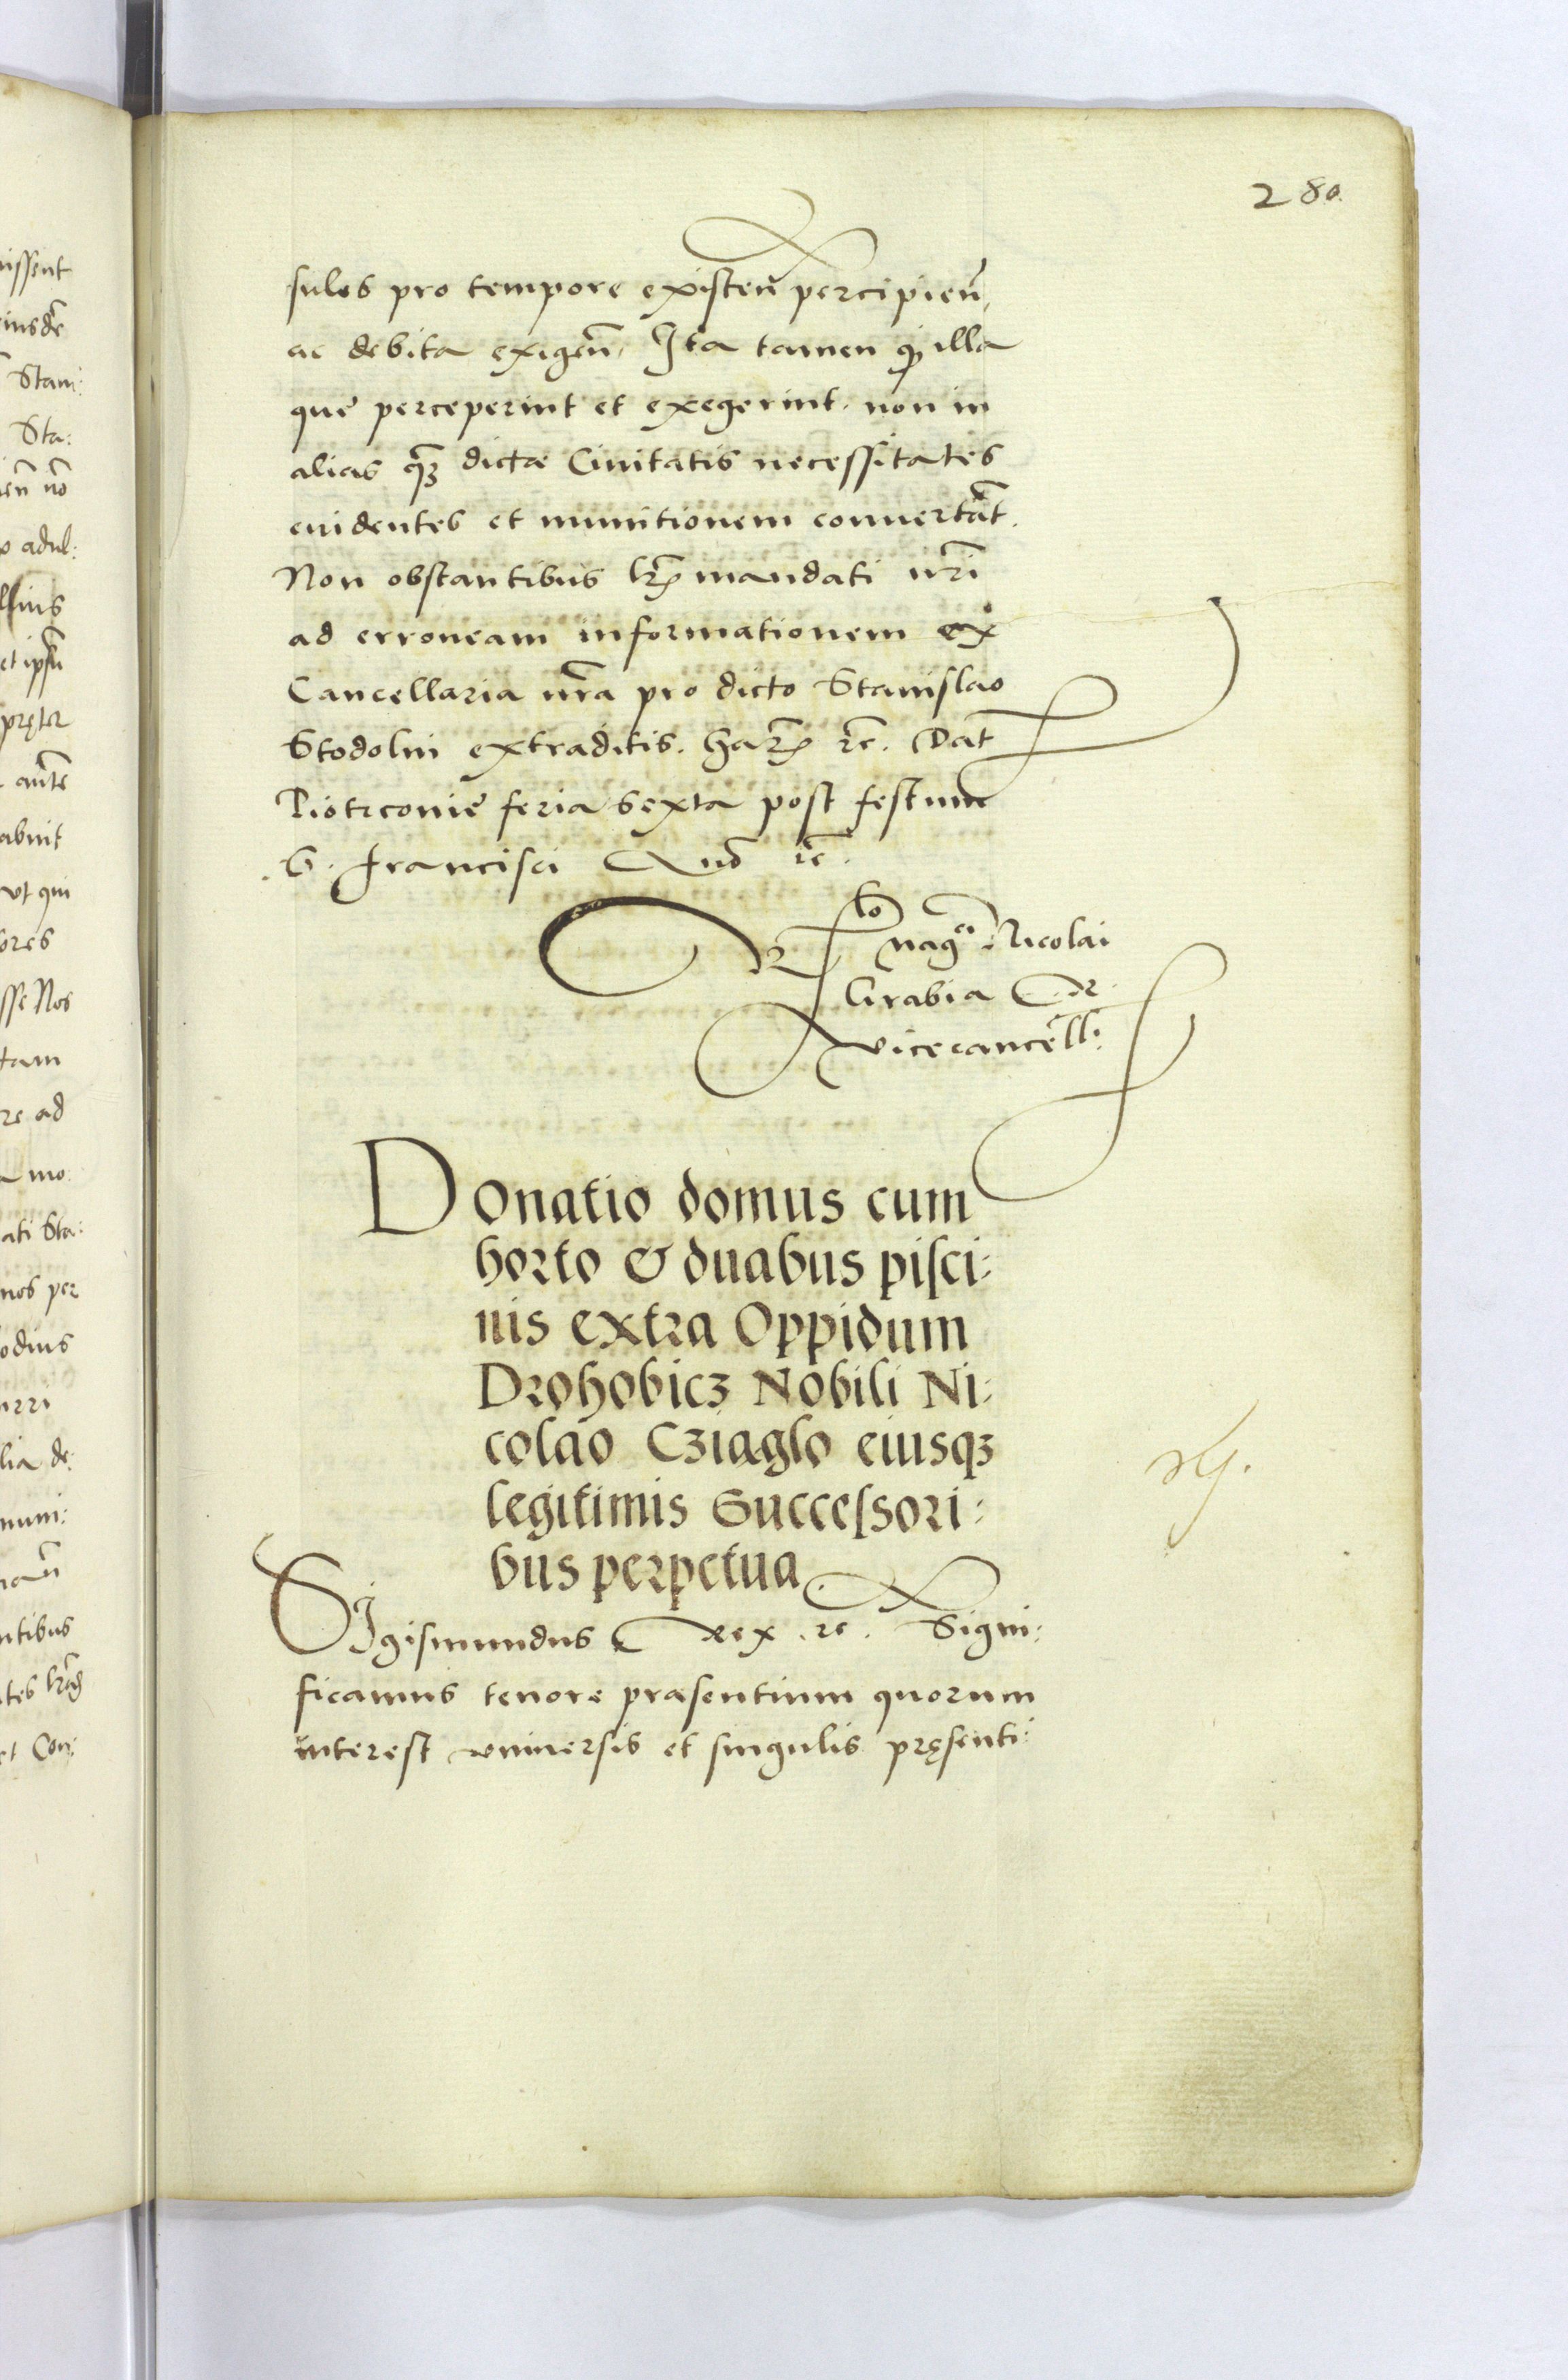 280.
sules pro tempore existen̄ percipien̄,
ac debita exigen̄, Ita tamen qd illa
que perceperint et exegerint. non in
alias qz̄ dictæ Ciuitatis necessitates
euidentes et munitionem conuertāt.
Non obstantibus lr̄is mandati nr̄i
ad erroneam informationem ex
Cancellaria nr̄a pro dicto Stanislao
Stodolni extraditis. Har̄. rc̄. Dat̄
Piotrconie feria sexta post festum
S. Francisci Anō rc̄.
Rlō mag^ci Nicolai
Grabia C. R.
vicecancell:
Donatio domus cum
horto & duabus pisci:
nis extra Oppidum
Drohobicz Nobili Ni:
colao Cziaglo eiusqz
legitimis Successori:
bus perpetua.
Sigismundus Rex .rc. Signi:
ficamus tenore præsentium quorum
interest vniuersis et singulis pręsenti:
uissent
eiusdē
Stani:
Sta:
adul:
et ipsū
pręter
abuit
vt qui
sse Nos
re ad
ati Sta:
nos per
lia de:
ntibus
et Con: